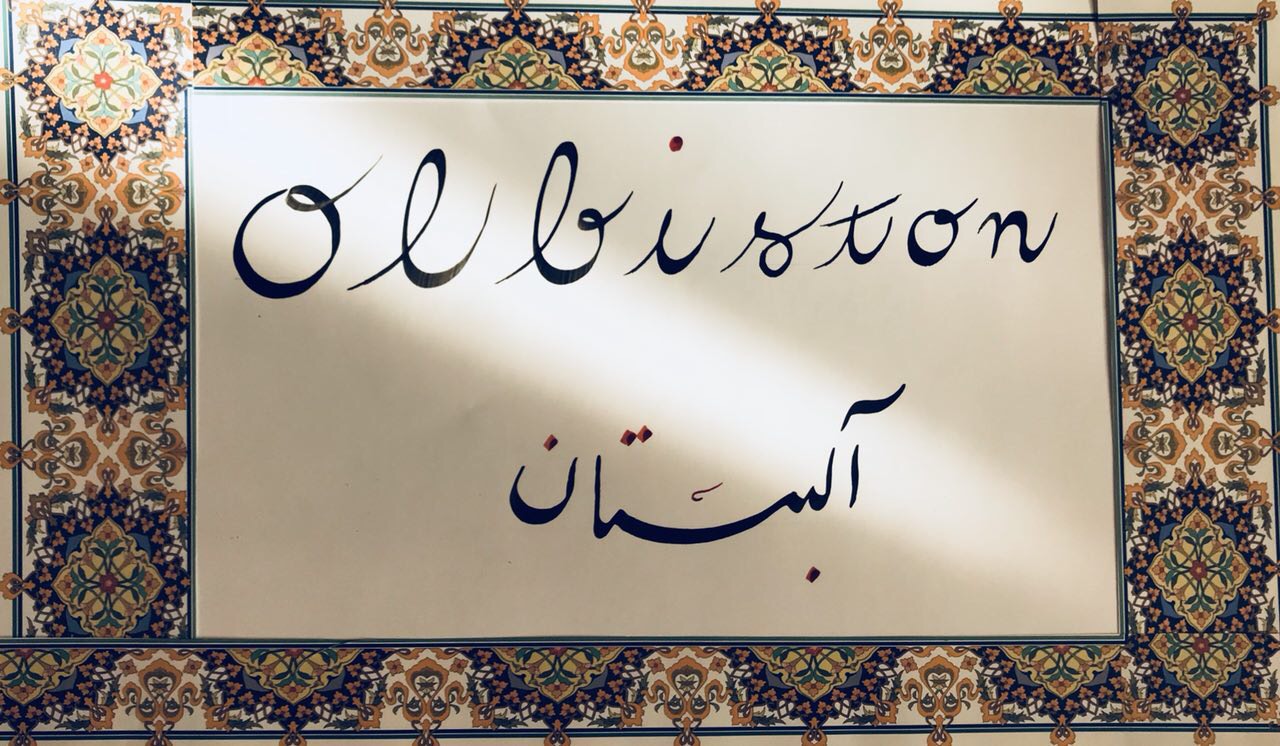 Olbiston
آلبستان